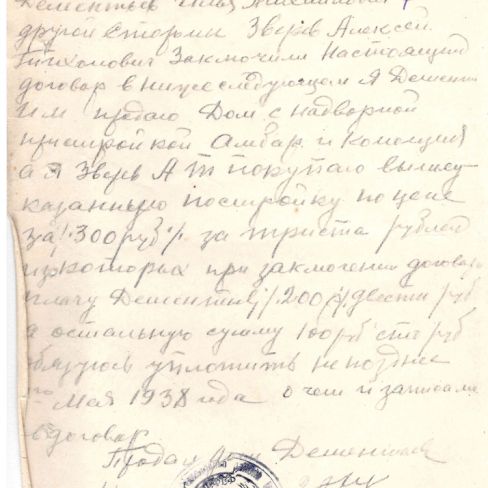 Дементьев Илья
другой стороны Зверев Алексей
Тихонович Заключили Настоящий
договор в нижеследующем Я Дементи
продаю Дом с надворной
пристройкой Амбар и Конюшня
а я Зверев А Т покупаю вышеу
казанную постройку по цене
за 300 руб за триста рублей
из которых при заключении договора
плачу Дементьеву 200 двести руб
а остальную сумму 100 руб сто руб
обязуюсь уплотить не позднее
Мая 1938 года о чем и записали
в договор
Продал Дементьев